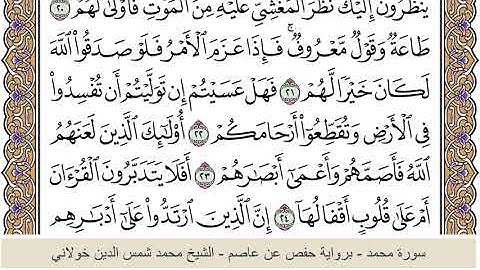 يَنظُرُونَ إِلَيْكَ نَظَرَ ٱلْمَغْشِىِّ عَلَيْهِ مِنَ ٱلْمَوْتِ فَأَوْلَىٰ لَهُمْ ٢٠
طَاعَةٌ وَقَوْلٌ مَّعْرُوفٌ ۚ فَإِذَا عَزَمَ ٱلْأَمْرُ فَلَوْ صَدَقُوا۟ ٱللَّهَ
لَكَانَ خَيْرًا لَّهُمْ ٢١ فَهَلْ عَسَيْتُمْ إِن تَوَلَّيْتُمْ أَن تُفْسِدُوا۟
فِى ٱلْأَرْضِ وَتُقَطِّعُوٓا۟ أَرْحَامَكُمْ ٢٢ أُو۟لَـٰٓئِكَ ٱلَّذِينَ لَعَنَهُمُ
ٱللَّهُ فَأَصَمَّهُمْ وَأَعْمَىٰٓ أَبْصَـٰرَهُمْ ٢٣ أَفَلَا يَتَدَبَّرُونَ ٱلْقُرْءَانَ
أَمْ عَلَىٰ قُلُوبٍ أَقْفَالُهَآ ٢٤ إِنَّ ٱلَّذِينَ ٱرْتَدُّوا۟ عَلَىٰٓ أَدْبَـٰرِهِم
سورة محمد - برواية حفص عن عاصم - الشيخ محمد شمس الدين خولاني